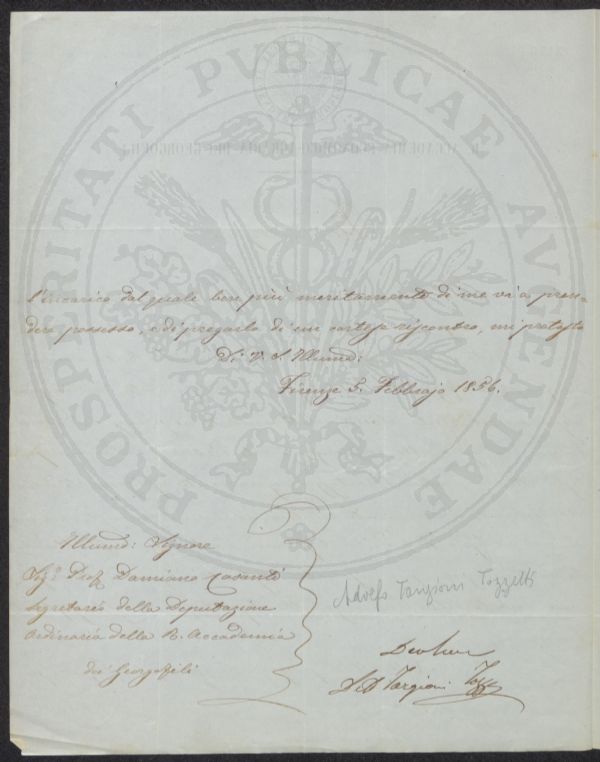 PROSPERITATI PUBLICAE AUGENDAE
l'incarico dal quale ben più meritamente di me và a pren-
dere possesso, e di pregarlo di un cortese riscontro, mi protesto
Di V. S. Illuma:
Firenze 5. Febbrajo 1856.
Illumo: Signore
Sigr Prof. Damiano Casanti
Segretario della Deputazione
Ordinaria della R. Accademia
dei Georgofili
Adolfo Targioni Tozzetti
Targioni Tozz